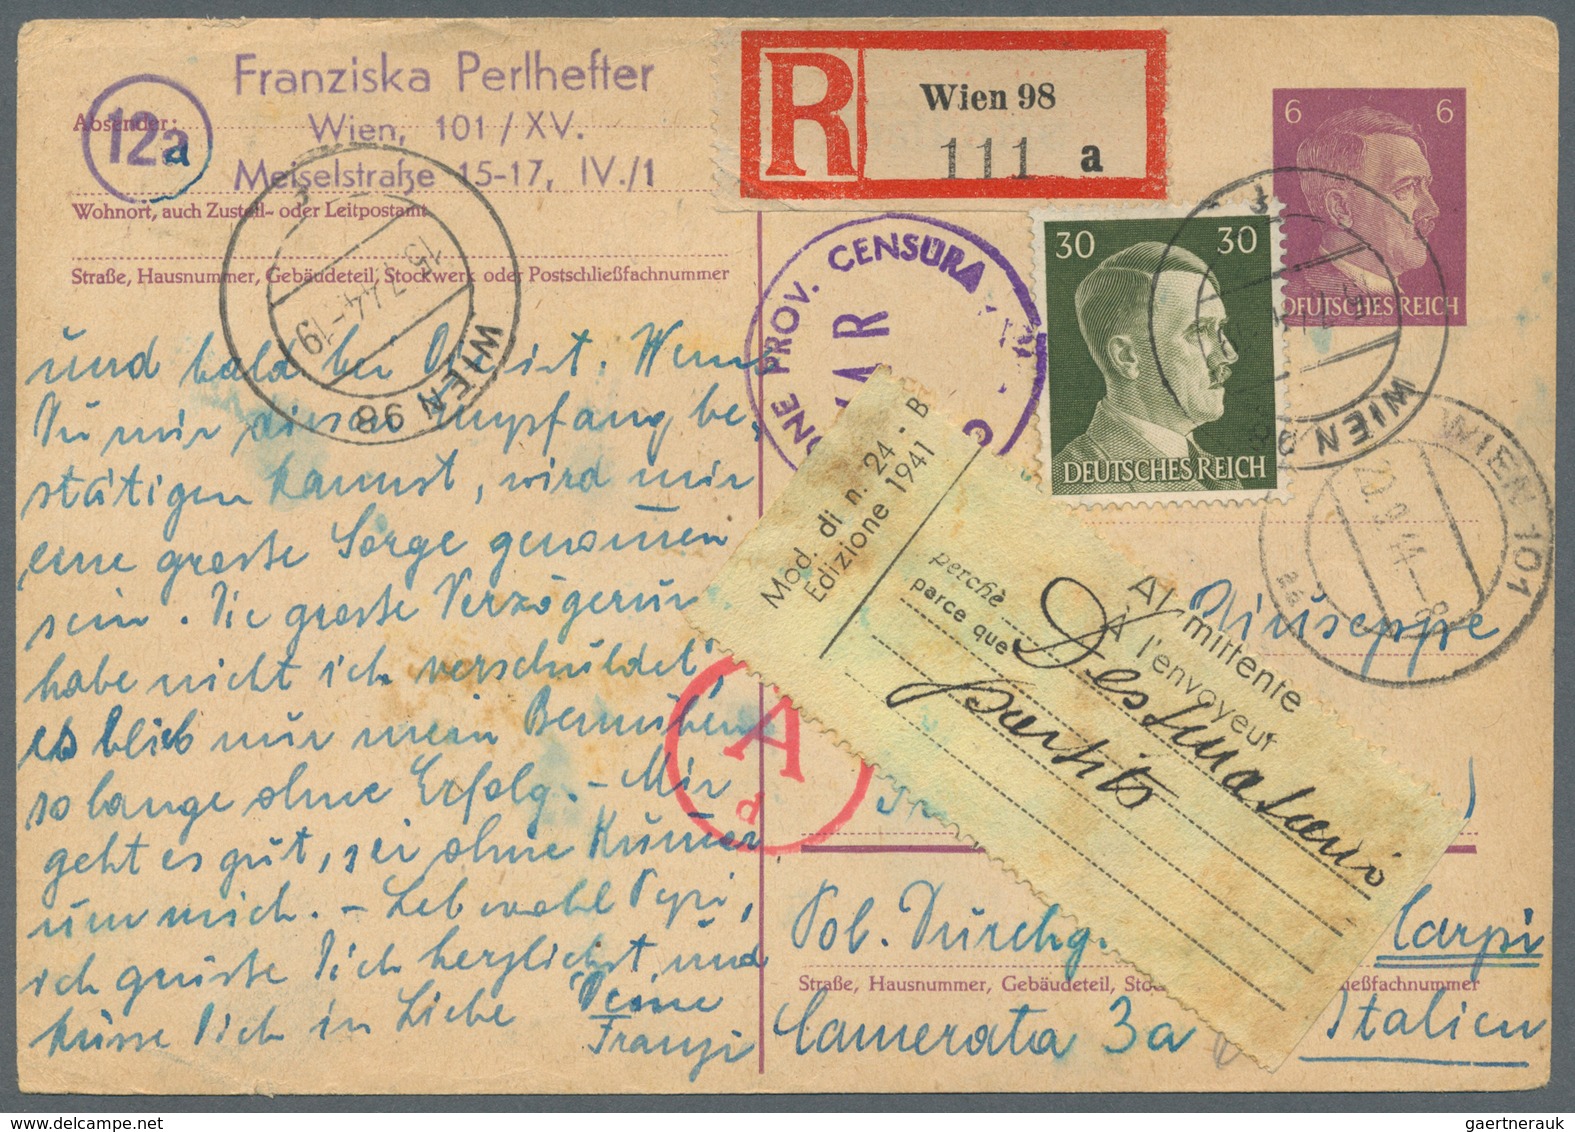 Franziska Perlhefter
Wien, 101/XV.
Meiselstraße 15-17, IV./1
12a
Absender:
Wohnort, auch Zustell- oder Leitpostamt
Straße, Hausnummer, Gebäudeteil, Stockwerk oder Postschließfachnummer
R
Wien 98
111 a
6 6
DEUTSCHES REICH
30 30
DEUTSCHES REICH
15.7.44-19
WIEN 98
PROV. CENSURA
WIEN
WIEN 101
und bald bei Dir ist. Wenn
Du mir diesen empfang be-
stätigen kannst, wird mir
eine grosse Sorge genommen
sein. Die grosse Verzögerun
habe nicht ich verschuldet,
es blieb nur mein Bemühen
so lange ohne Erfolg. - Mir
geht es gut, sei ohne Kummer
um mich. - Leb wohl Pepi,
ich grüsse Dich herzlichst, und
küsse Dich in Liebe Deine
Franzi
A
d
Mod. di n. 24 - B
Edizione 1941
Al mittente
À l'envoyeur
perchè
parce que
Destinatario
partito
Giuseppe
Pol. Durchg. Carpi
Straße, Hausnummer, Gebäudeteil, Sto ießfachnummer
Camerata 3a Italien
gaertnerauk @ www.delcampe.net